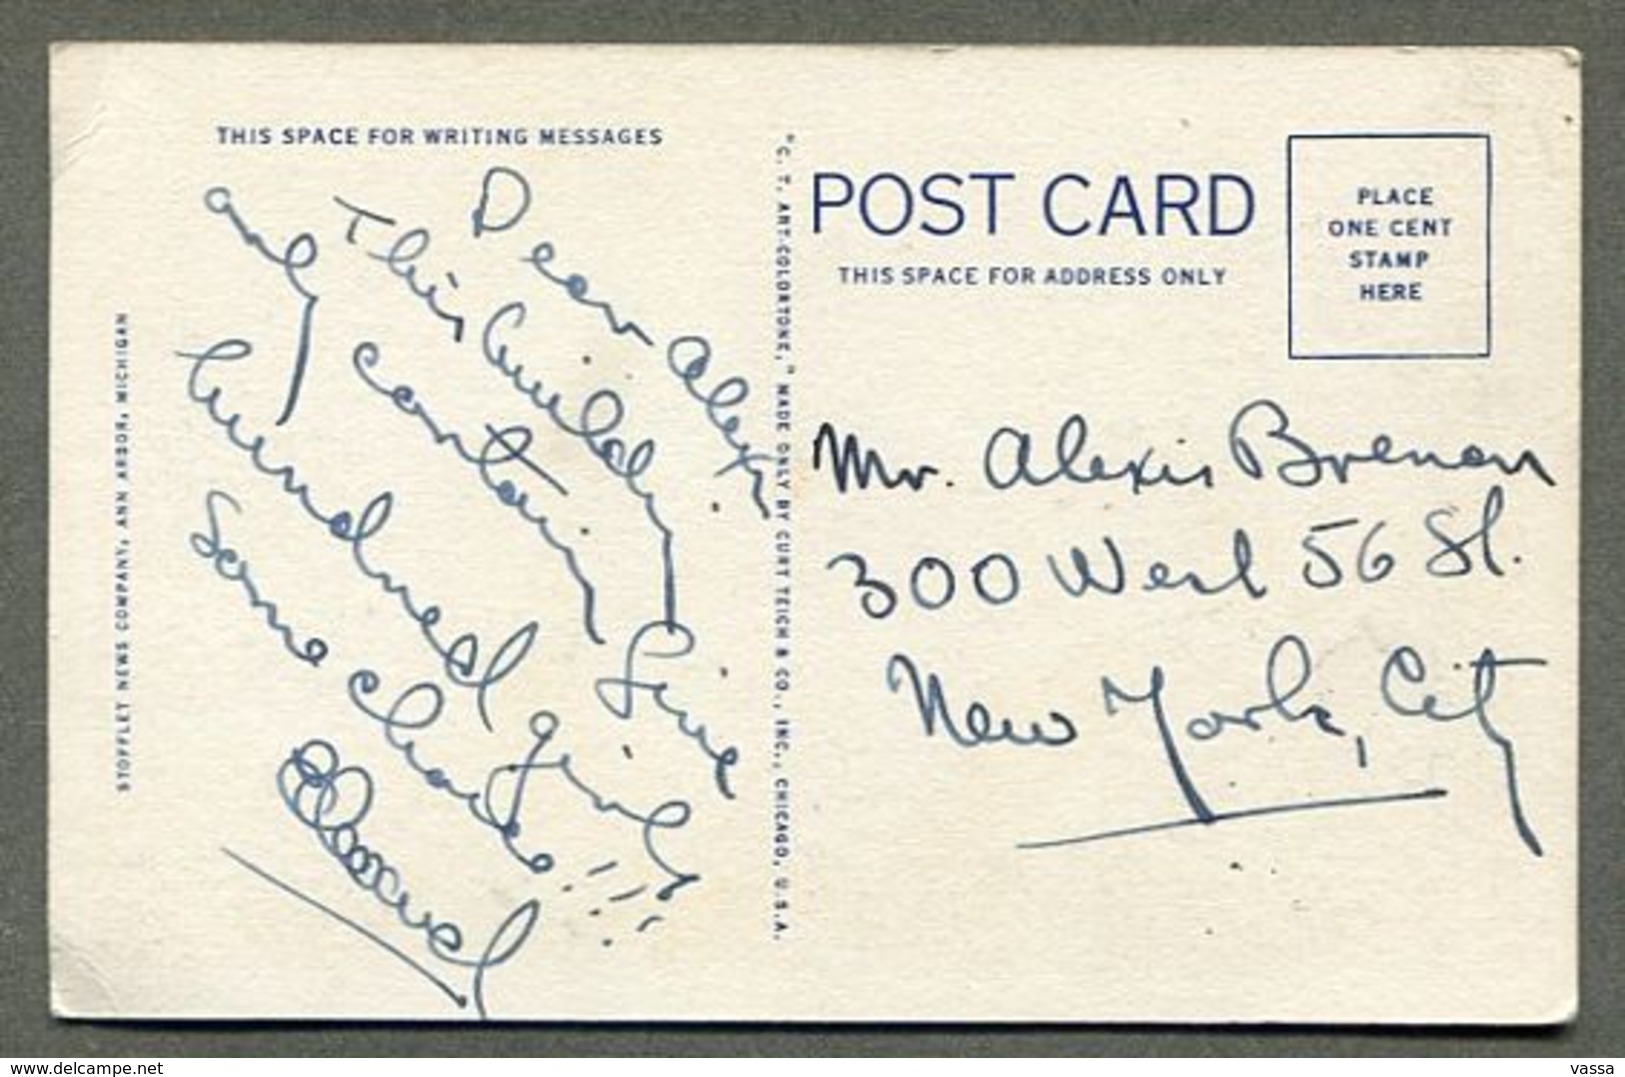 THIS SPACE FOR WRITING MESSAGES
Dear Alexis
This building
contains five
hundred girls
only
some choice!!!
POST CARD
THIS SPACE FOR ADDRESS ONLY
PLACE
ONE CENT
STAMP
HERE
Mr. Alexis Brenon
300 West 56 St.
New York, City
STOFFLET NEWS COMPANY, ANN ARBOR, MICHIGAN
"C. T. ART-COLORTONE," MADE ONLY BY CURT TEICH & CO., INC., CHICAGO, U.S.A.
delcampe.net
vassa